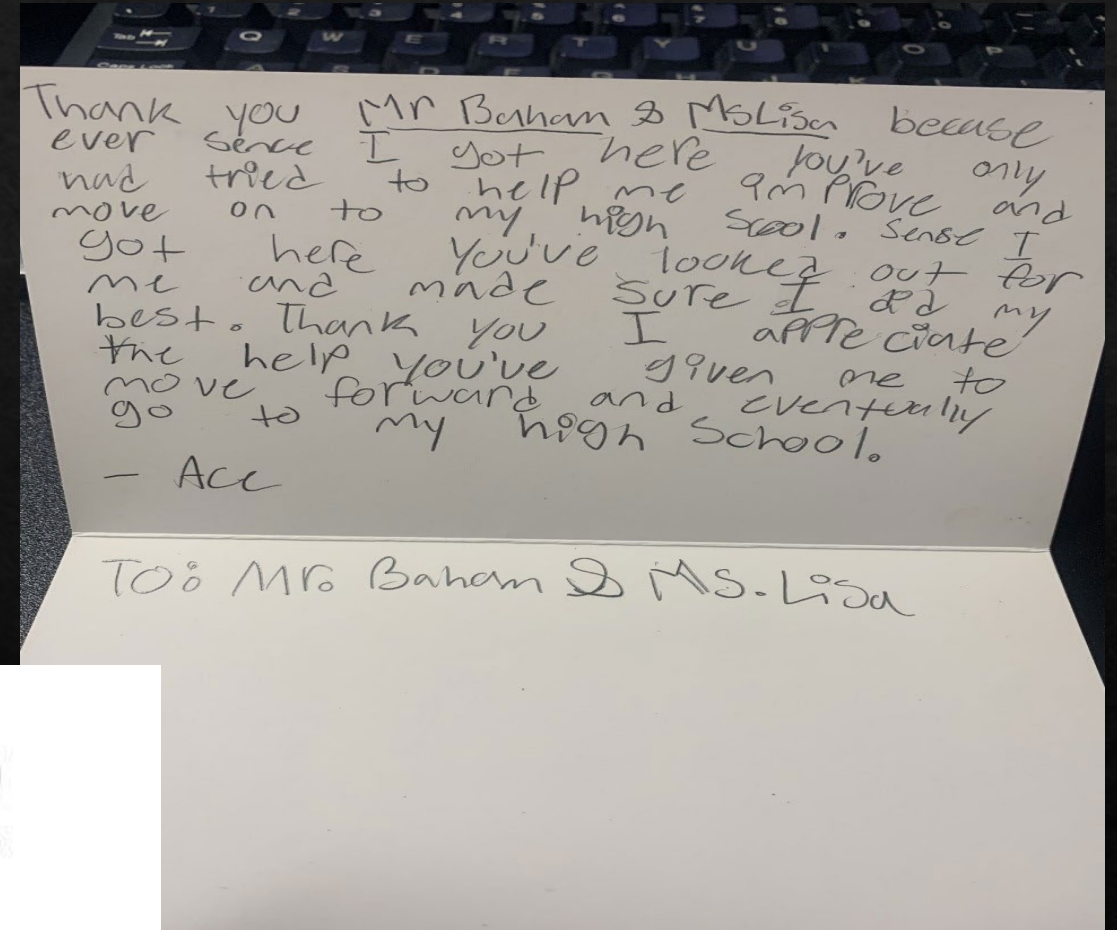 Tab
Q W E R T Y U I O P
Caps Lock
Thank you Mr Baham & MsLisa becuse
ever sence I got here you've only
had tried to help me improve and
move on to my high scool. sense I
got here you've looked out for
me and made sure I did my
best. Thank you I appreciate
the help you've given me to
move forward and eventually
go to my high school.
- Ace
To: Mr. Baham & Ms. Lisa